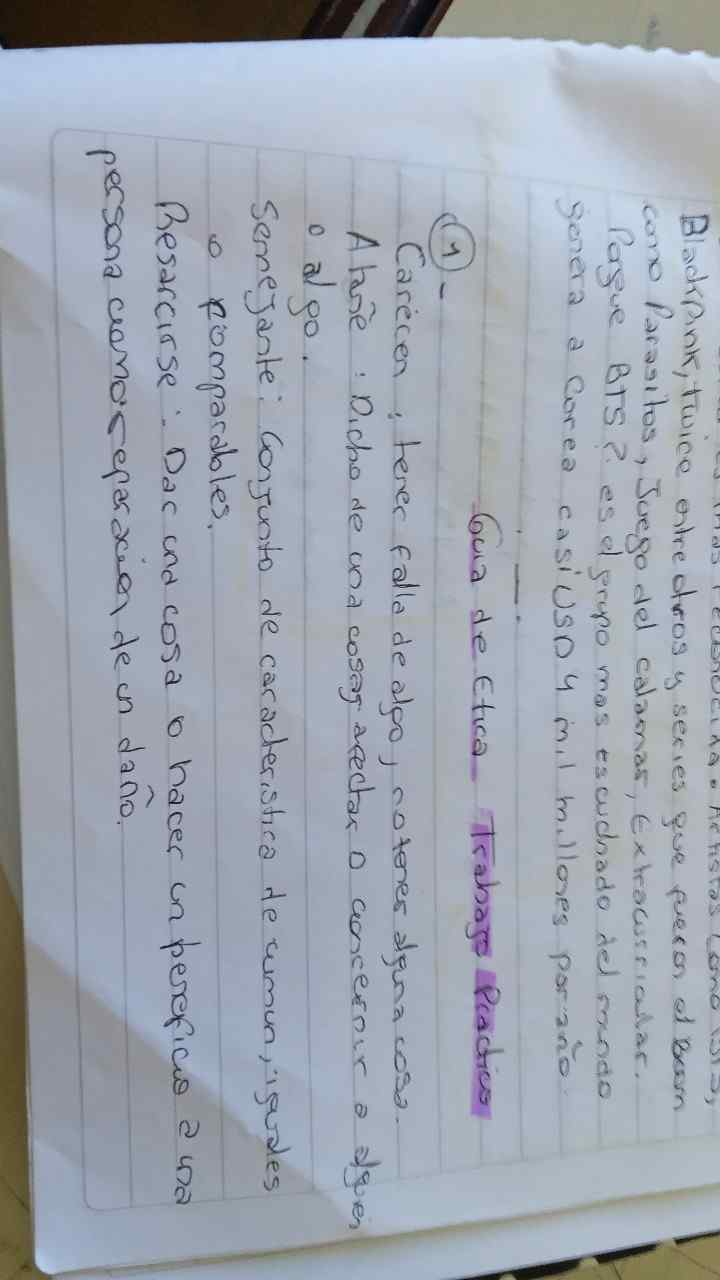 Artistas como BTS,
BlackPink, twice entre otros y series que fueron el boom
como Parasitos, Juego del calamar, Extracurricular.
Porque BTS? es el grupo mas escuchado del mundo
genera a Corea casi USD 4 mil millones por año.
Guia de Etica Trabajo Practico
1 -
Carecen: tener falla de algo, no tener alguna cosa.
Atañe: Dicho de una cosa: afectar o concernir a alguien
o algo.
Semejante: Conjunto de caracteristica de comun, iguales
o comparables.
Resarcirse: Dar una cosa o hacer un beneficio a una
persona como reparacion de un daño.